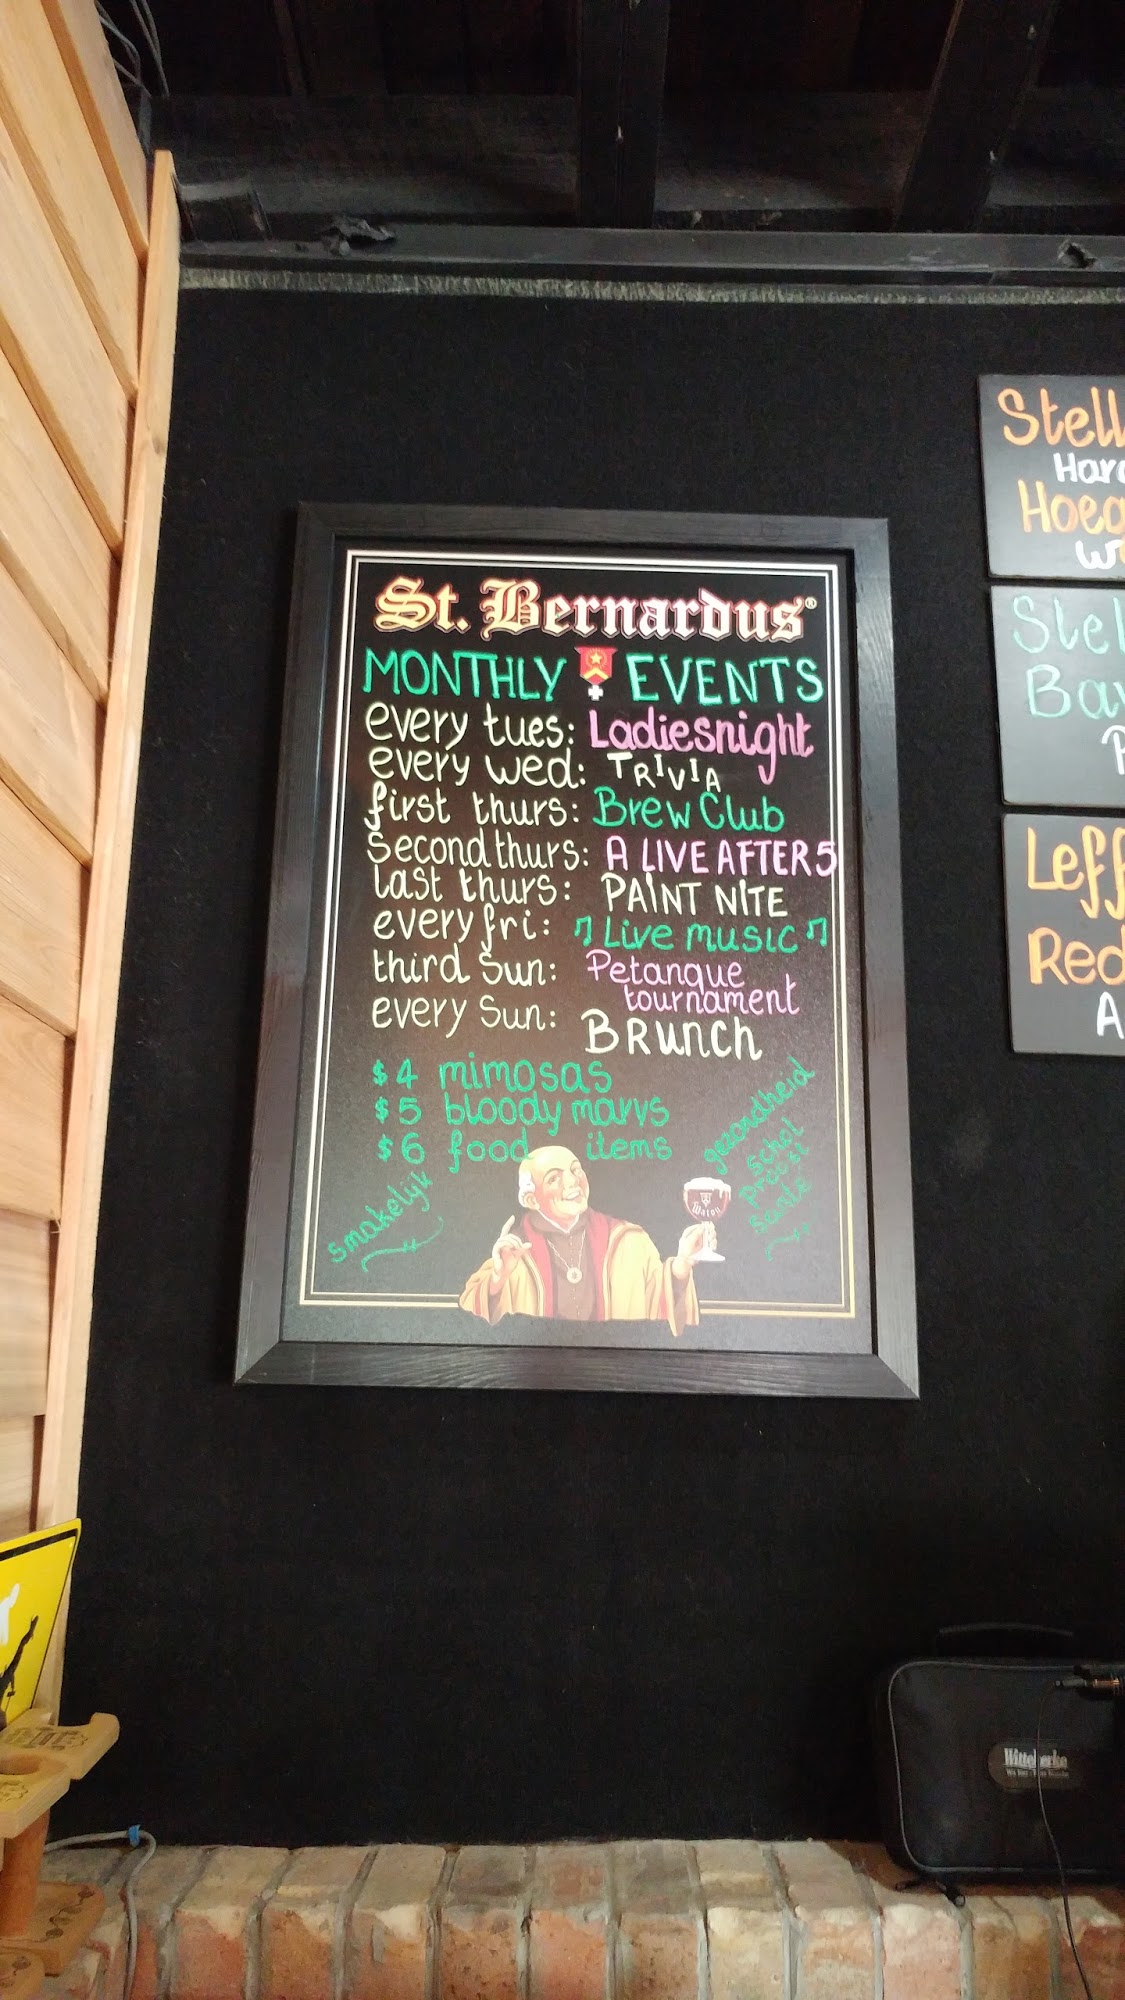 St. Bernardus®
MONTHLY EVENTS
every tues: Ladiesnight
every wed: TRIVIA
first thurs: Brew Club
second thurs: A LIVE AFTER 5
last thurs: PAINT NITE
every fri: ♫ Live music ♫
third Sun: Petanque
tournament
every Sun: BRunch
$4 mimosas
$5 bloody marys
$6 food items
smakelijk
gezondheid
schol
proost
santé
Watou
Stell
Hoeg
Stel
Leff
Red
A
Wittekerke